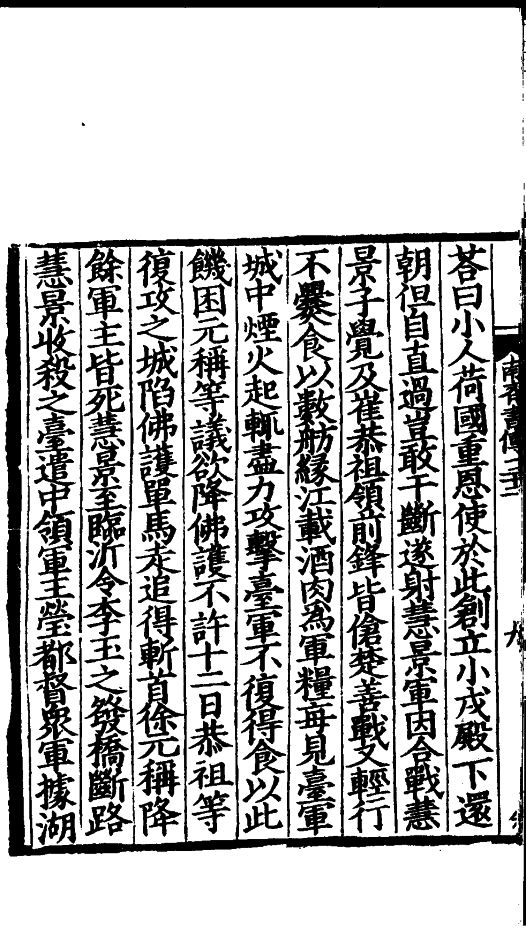 南齊書傳三十二
九
荅曰小人荷國重恩使於此創立小戍殿下還
朝但自直過豈敢干斷遂射慧景軍因合戰慧
景子覺及崔恭祖領前鋒皆傖楚善戰又輕行
不爨食以數舫緣江載酒肉為軍糧每見臺軍
城中煙火起輒盡力攻擊臺軍不復得食以此
饑困元稱等議欲降佛護不許十二日恭祖等
復攻之城陷佛護單馬走追得斬首徐元稱降
餘軍主皆死慧景至臨沂令李玉之發橋斷路
慧景收殺之臺遣中領軍王瑩都督衆軍據湖